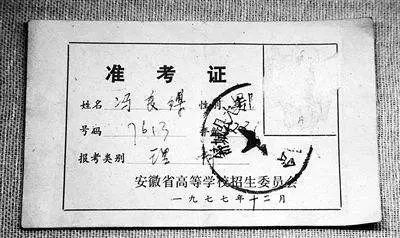 准考证
姓名 冯良 性别 男
号码 7613
报考类别 理
安徽省高等学校招生委员会
一九七七年十二月